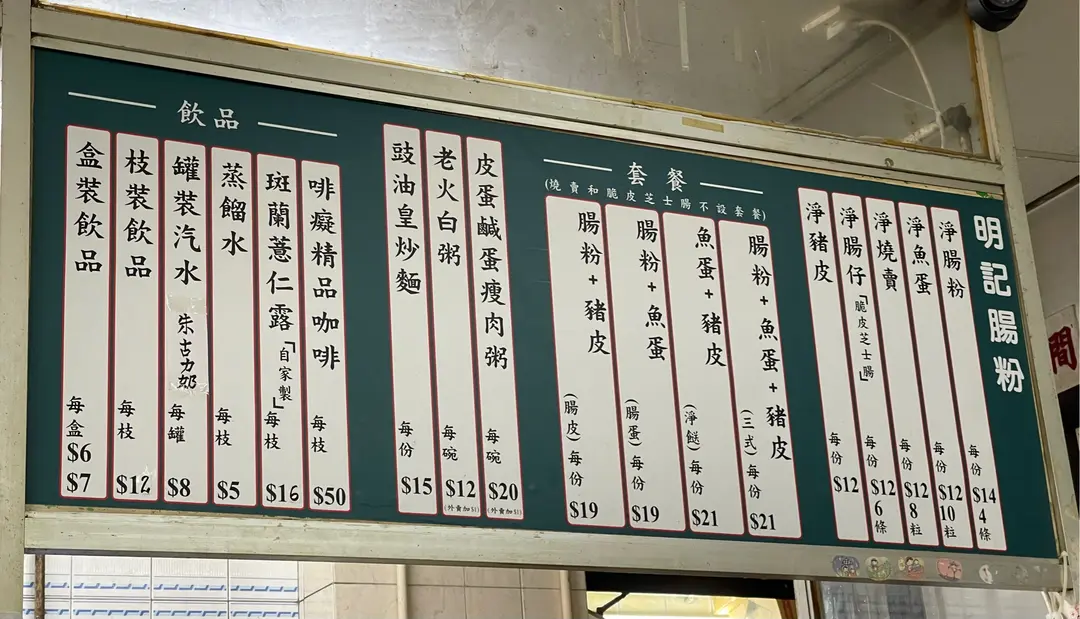 明記腸粉
淨腸粉 每份 $14 4條
淨魚蛋 每份 $12 10粒
淨燒賣 每份 $12 8粒
淨腸仔「脆皮芝士腸」 每份 $12 6條
淨豬皮 每份 $12
套餐
(燒賣和脆皮芝士腸不設套餐)
腸粉+魚蛋+豬皮 (三式) 每份 $21
魚蛋+豬皮 (淨餸) 每份 $21
腸粉+魚蛋 (腸蛋) 每份 $19
腸粉+豬皮 (腸皮) 每份 $19
皮蛋鹹蛋瘦肉粥 每碗 $20 (外賣加$1)
老火白粥 每碗 $12 (外賣加$1)
豉油皇炒麵 每份 $15
飲品
啡癡精品咖啡 每枝 $50
斑蘭薏仁露「自家製」 每枝 $16
蒸餾水 每枝 $5
罐裝汽水 朱古力奶 每罐 $8
枝裝飲品 每枝 $12
盒裝飲品 每盒 $6 $7
間